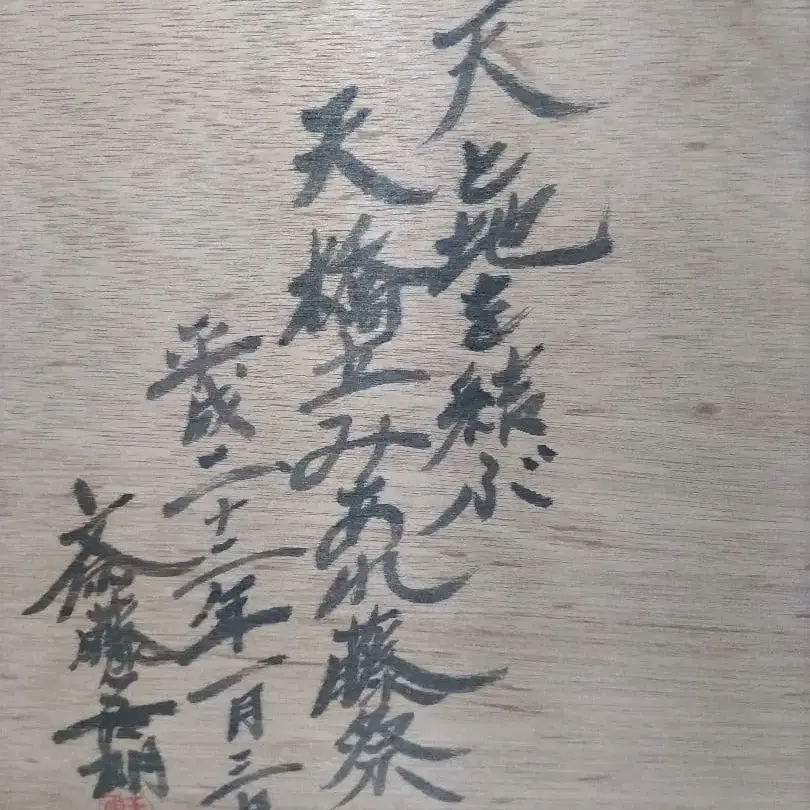 天と地を結ぶ
天橋立みあれ藤祭
平成二十二年一月三日
斎藤五朗